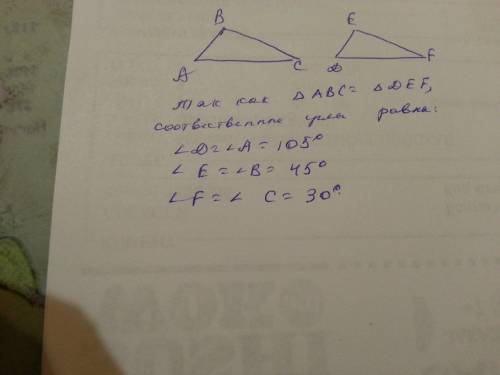 B
E
A
C
D
F
Так как △ABC = △DEF,
соотвественные углы равны:
∠D = ∠A = 105°
∠E = ∠B = 45°
∠F = ∠ C = 30°.